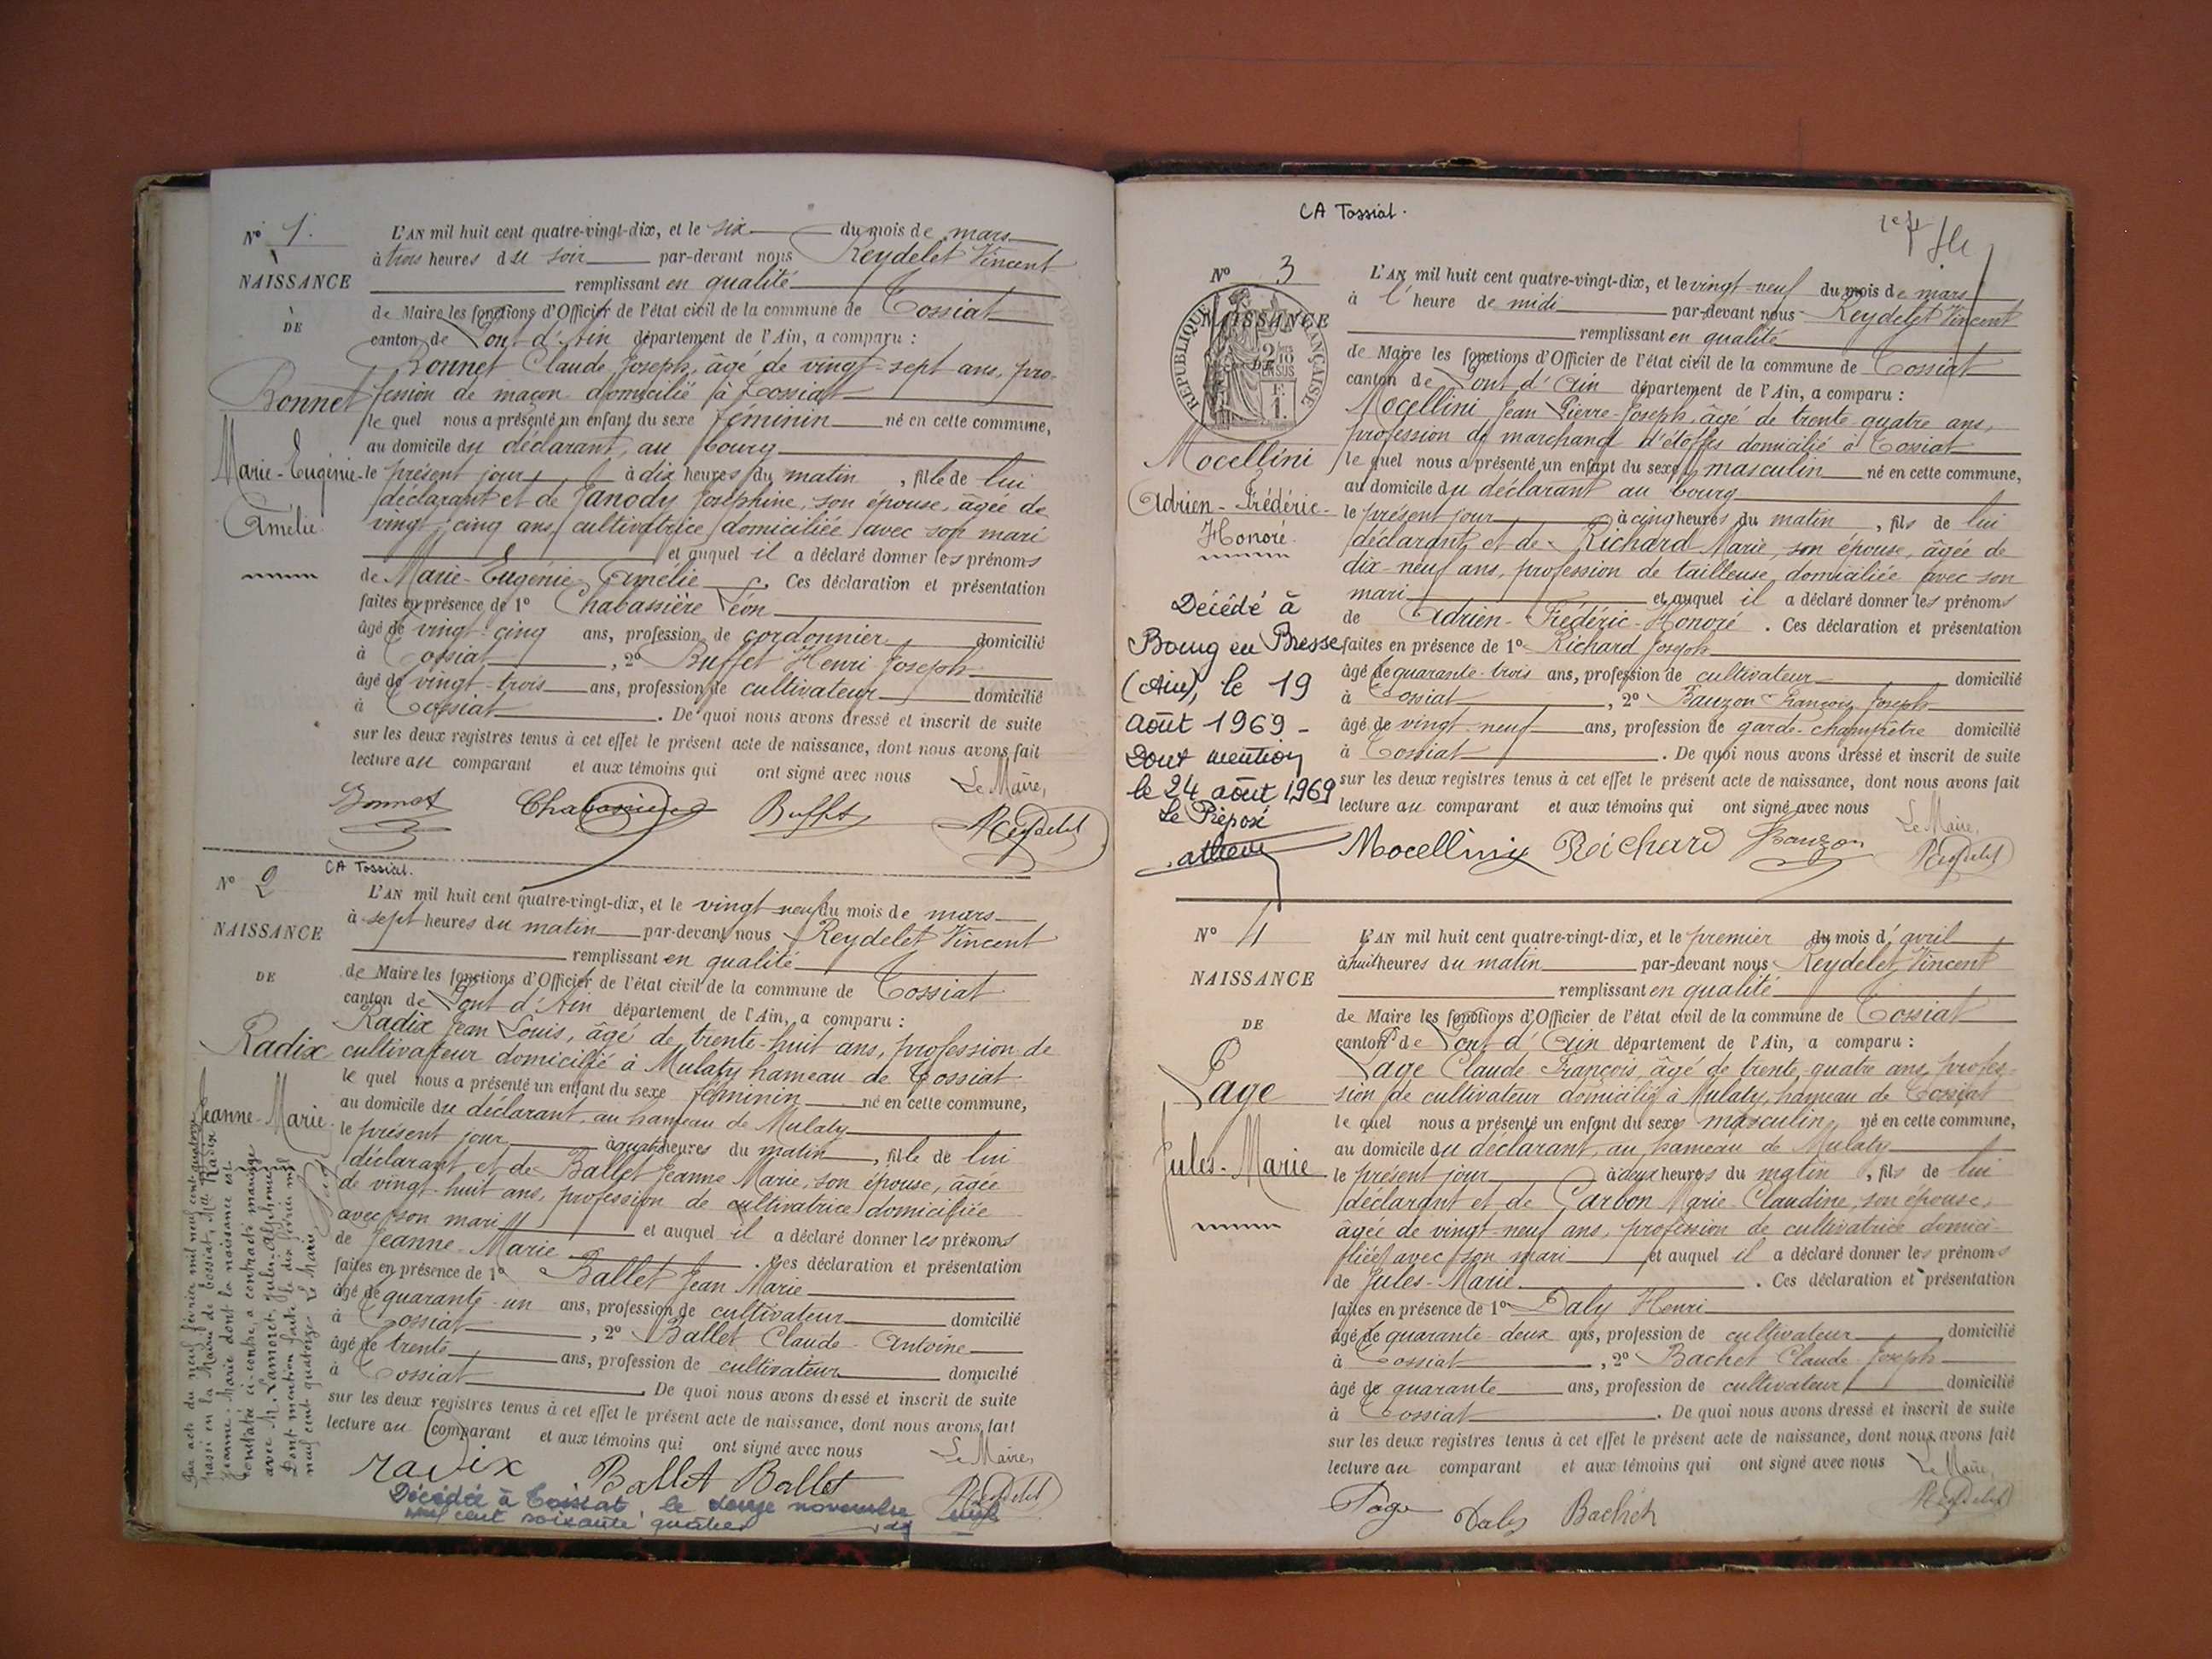 N° 1.
NAISSANCE
DE
Bonnet
Marie-Eugénie-
Amélie.
L'AN mil huit cent quatre-vingt-dix, et le six du mois de mars
à trois heures du soir par-devant nous Reydelet Vincent
remplissant en qualité
de Maire les fonctions d'Officier de l'état civil de la commune de Tossiat
canton de Pont d'Ain département de l'Ain, a comparu :
Bonnet Claude Joseph, âgé de vingt-sept ans, pro-
fession de maçon domicilié à Tossiat
le quel nous a présenté un enfant du sexe féminin né en cette commune,
au domicile du déclarant, au bourg
le présent jour à dix heures du matin, fille de lui
déclarant et de Janody Joséphine, son épouse, âgée de
vingt-cinq ans, cultivatrice domiciliée avec son mari
et auquel il a déclaré donner les prénoms
de Marie-Eugénie-Amélie. Ces déclaration et présentation
faites en présence de 1° Chabassière Léon
âgé de vingt-cinq ans, profession de cordonnier domicilié
à Tossiat, 2° Buffet Henri Joseph
âgé de vingt-trois ans, profession de cultivateur domicilié
à Tossiat. De quoi nous avons dressé et inscrit de suite
sur les deux registres tenus à cet effet le présent acte de naissance, dont nous avons fait
lecture au comparant et aux témoins qui ont signé avec nous Le Maire,
Bonnet Chabassière Buffet Reydelet
CA Tossiat.
N° 2
NAISSANCE
DE
Radix
Jeanne-Marie.
L'AN mil huit cent quatre-vingt-dix, et le vingt neuf du mois de mars
à sept heures du matin par-devant nous Reydelet Vincent
remplissant en qualité
de Maire les fonctions d'Officier de l'état civil de la commune de Tossiat
canton de Pont d'Ain département de l'Ain, a comparu :
Radix Jean Louis, âgé de trente-huit ans, profession de
cultivateur domicilié à Mulaty hameau de Tossiat
le quel nous a présenté un enfant du sexe féminin né en cette commune,
au domicile du déclarant, au hameau de Mulaty
le présent jour à quatre heures du matin, fille de lui
déclarant et de Ballet Jeanne Marie, son épouse, âgée
de vingt-huit ans, profession de cultivatrice domiciliée
avec son mari et auquel il a déclaré donner les prénoms
de Jeanne-Marie. Ces déclaration et présentation
faites en présence de 1° Ballet Jean Marie
âgé de quarante-un ans, profession de cultivateur domicilié
à Tossiat, 2° Ballet Claude-Antoine
âgé de trente ans, profession de cultivateur domicilié
à Tossiat. De quoi nous avons dressé et inscrit de suite
sur les deux registres tenus à cet effet le présent acte de naissance, dont nous avons fait
lecture au comparant et aux témoins qui ont signé avec nous Le Maire,
Radix Ballet Ballet Reydelet
Décédée à Tossiat, le douze novembre
neuf cent soixante quatre
Par acte du neuf février mil neuf cent quatorze
passé en la Mairie de Tossiat, Mlle Radix
Jeanne-Marie dont la naissance est
constatée ci-contre, a contracté mariage
avec M. Lamoret Jules-Alphonse
Dont mention faite le dix février mil
neuf cent quatorze Le Maire
CA Tossiat.
N° 3
NAISSANCE
DE
RÉPUBLIQUE FRANÇAISE
Mocellini
Adrien-Frédéric-
Honoré.
Décédé à
Bourg en Bresse
(Ain), le 19
août 1969 -
Dont mention
le 24 août 1969
Le Préposé
L'AN mil huit cent quatre-vingt-dix, et le vingt-neuf du mois de mars
à l'heure de midi par-devant nous Reydelet Vincent
remplissant en qualité
de Maire les fonctions d'Officier de l'état civil de la commune de Tossiat
canton de Pont d'Ain département de l'Ain, a comparu :
Mocellini Jean Pierre-Joseph, âgé de trente-quatre ans,
profession de marchand d'étoffes domicilié à Tossiat
le quel nous a présenté un enfant du sexe masculin né en cette commune,
au domicile du déclarant au bourg
le présent jour à cinq heures du matin, fils de lui
déclarant, et de Richard Marie, son épouse, âgée de
dix-neuf ans, profession de tailleuse domiciliée avec son
mari et auquel il a déclaré donner les prénoms
de Adrien-Frédéric-Honoré. Ces déclaration et présentation
faites en présence de 1° Richard Joseph
âgé de quarante-trois ans, profession de cultivateur domicilié
à Tossiat, 2° Bauzon François Joseph
âgé de vingt-neuf ans, profession de garde-champêtre domicilié
à Tossiat. De quoi nous avons dressé et inscrit de suite
sur les deux registres tenus à cet effet le présent acte de naissance, dont nous avons fait
lecture au comparant et aux témoins qui ont signé avec nous Le Maire,
Mocellini Richard Bauzon Reydelet
N° 4
NAISSANCE
DE
Page
Jules-Marie
L'AN mil huit cent quatre-vingt-dix, et le premier du mois d'avril
à huit heures du matin par-devant nous Reydelet Vincent
remplissant en qualité
de Maire les fonctions d'Officier de l'état civil de la commune de Tossiat
canton de Pont d'Ain département de l'Ain, a comparu :
Page Claude François, âgé de trente quatre ans, profes-
sion de cultivateur domicilié à Mulaty, hameau de Tossiat
le quel nous a présenté un enfant du sexe masculin, né en cette commune,
au domicile du déclarant, au hameau de Mulaty
le présent jour à deux heures du matin, fils de lui
déclarant et de Carbon Marie-Claudine, son épouse,
âgée de vingt-neuf ans, profession de cultivatrice domici-
liée avec son mari et auquel il a déclaré donner les prénoms
de Jules-Marie. Ces déclaration et présentation
faites en présence de 1° Daly Henri
âgé de quarante-deux ans, profession de cultivateur domicilié
à Tossiat, 2° Bachet Claude Joseph
âgé de quarante ans, profession de cultivateur domicilié
à Tossiat. De quoi nous avons dressé et inscrit de suite
sur les deux registres tenus à cet effet le présent acte de naissance, dont nous avons fait
lecture au comparant et aux témoins qui ont signé avec nous Le Maire,
Page Daly Bachet Reydelet